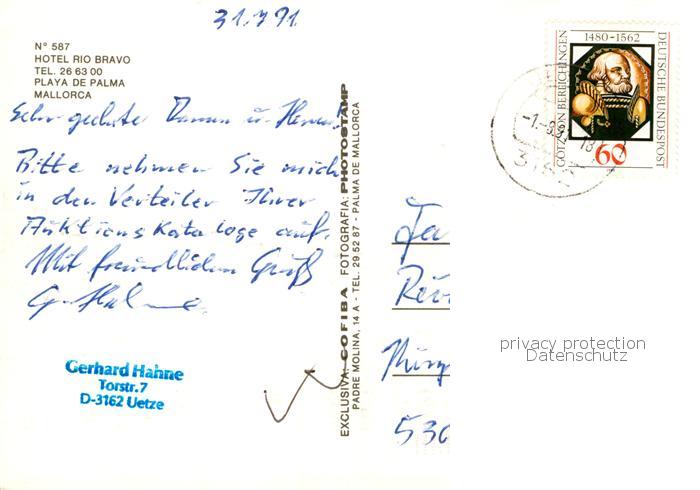 31.7.91
N° 587
HOTEL RIO BRAVO
TEL. 26 63 00
PLAYA DE PALMA
MALLORCA
Sehr geehrte Damen u. Herren!
Bitte nehmen Sie mich
in den Verteiler Ihrer
Auktions Kataloge auf.
Mit freundlichem Gruß
Gerhard Hahne
Torstr. 7
D-3162 Uetze
EXCLUSIVA: COFIBA FOTOGRAFIA: PHOTOSTAMP
PADRE MOLINA, 14 A - TEL. 29 52 87 - PALMA DE MALLORCA
1480-1562
GÖTZ VON BERLICHINGEN
DEUTSCHE BUNDESPOST
60
privacy protection
Datenschutz